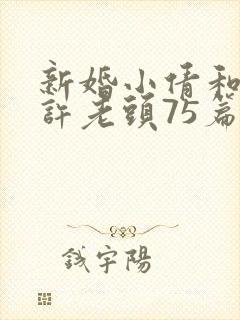 新婚小倩和
許老頭75篇
錢宇陽